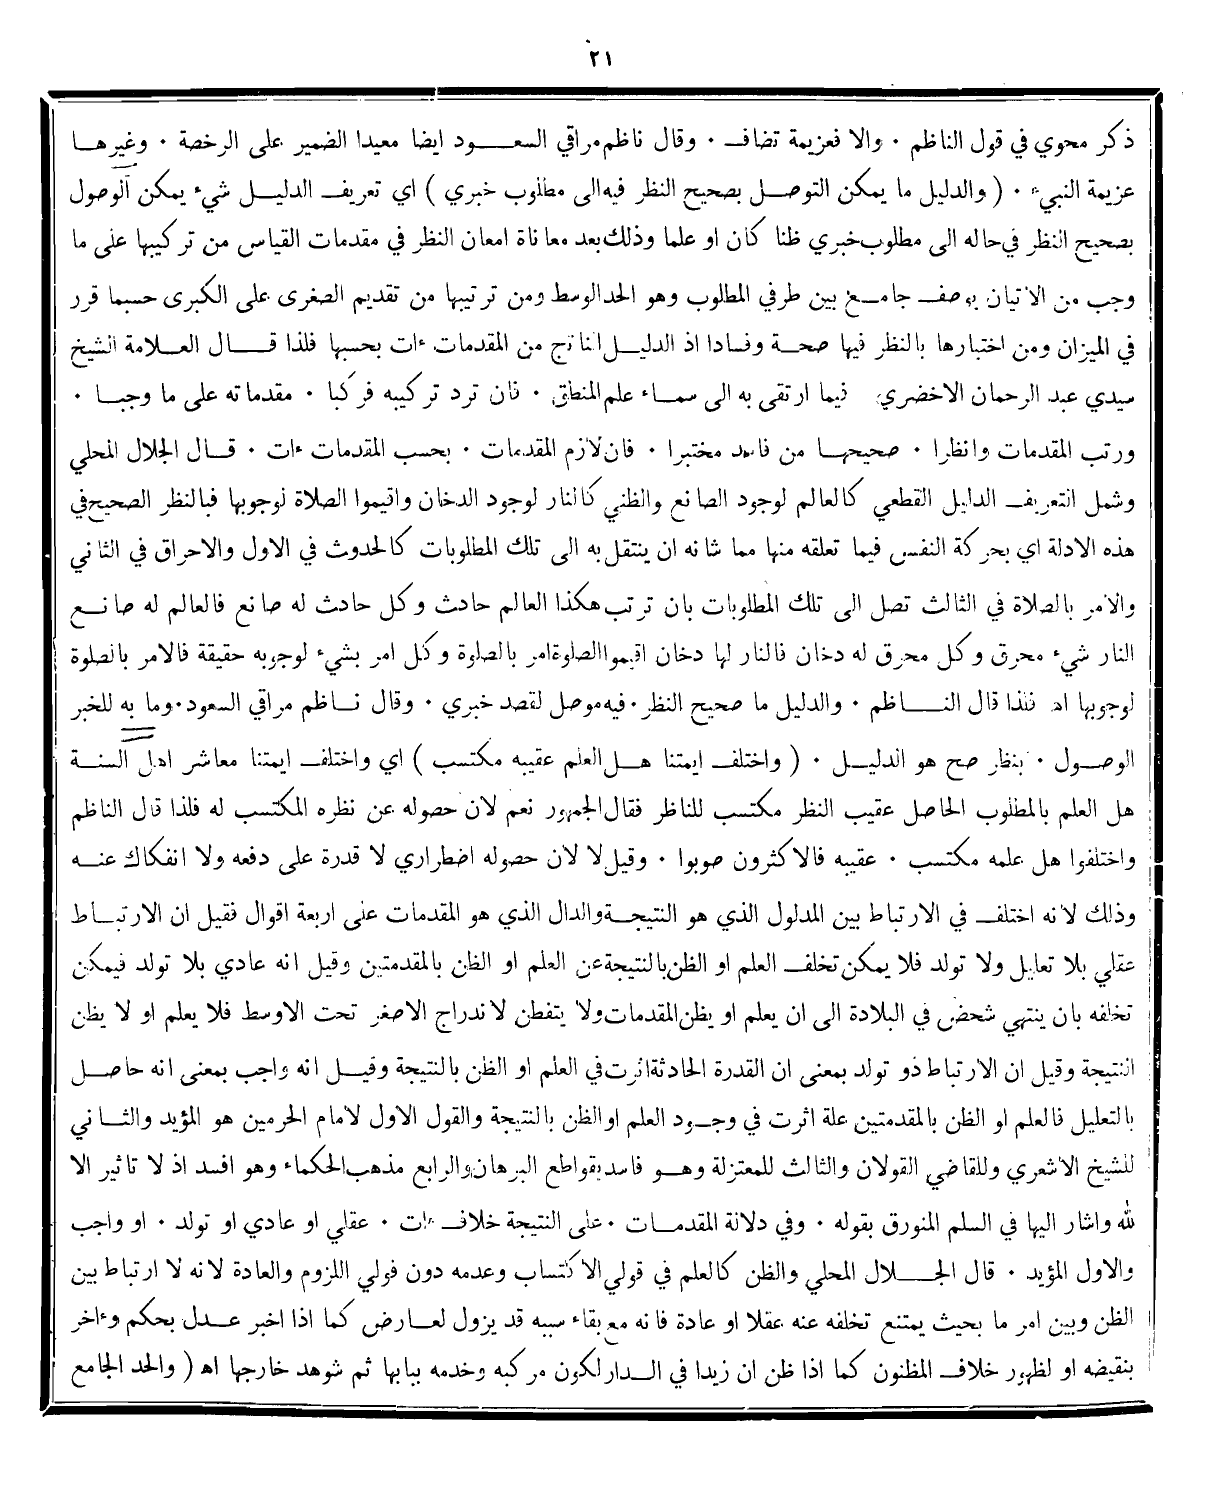 ٢١
ذكر محوي في قول الناظم ٠ والا فعزيمة تضاف ٠ وقال ناظم مراقي السعود ايضا معيدا الضمير على الرخصة ٠ وغيرها
عزيمة النبيء ٠ ( والدليل ما يمكن التوصل بصحيح النظر فيه الى مطلوب خبري ) اي تعريف الدليل شيء يمكن الوصول
بصحيح النظر في حاله الى مطلوب خبري ظنا كان او علما وذلك بعد معاناة امعان النظر في مقدمات القياس من تركيبها على ما
وجب من الاتيان بوصف جامع بين طرفي المطلوب وهو الحد الوسط ومن ترتيبها من تقديم الصغرى على الكبرى حسبما قرر
في الميزان ومن اختبارها بالنظر فيها صحة وفسادا اذ الدليل الناتج من المقدمات ءات بحسبها فلذا قال العلامة الشيخ
سيدي عبد الرحمان الاخضري فيما ارتقى به الى سماء علم المنطق ٠ فان ترد تركيبه فركبا ٠ مقدماته على ما وجبا ٠
ورتب المقدمات وانظرا ٠ صحيحها من فاسد مختبرا ٠ فان لازم المقدمات ٠ بحسب المقدمات ءات ٠ قال الجلال المحلي
وشمل التعريف الدليل القطعي كالعالم لوجود الصانع والظني كالنار لوجود الدخان واقيموا الصلاة لوجوبها فبالنظر الصحيح في
هذه الادلة اي بحركة النفس فيما تعلقه منها مما شانه ان ينتقل به الى تلك المطلوبات كالحدوث في الاول والاحراق في الثاني
والامر بالصلاة في الثالث تصل الى تلك المطلوبات بان ترتب هكذا العالم حادث وكل حادث له صانع فالعالم له صانع
النار شيء محرق وكل محرق له دخان فالنار لها دخان اقيموا الصلوة امر بالصلوة وكل امر بشيء لوجوبه حقيقة فالامر بالصلوة
لوجوبها اه فلذا قال الناظم ٠ والدليل ما صحيح النظر ٠ فيه موصل لقصد خبري ٠ وقال ناظم مراقي السعود ٠ وما به للخبر
الوصول ٠ بنظر صح هو الدليل ٠ ( واختلف ايمتنا هل العلم عقيبه مكتسب ) اي واختلف ايمتنا معاشر اهل السنة
هل العلم بالمطلوب الحاصل عقيب النظر مكتسب للناظر فقال الجمهور نعم لان حصوله عن نظره المكتسب له فلذا قال الناظم
واختلفوا هل علمه مكتسب ٠ عقيبه فالاكثرون صوبوا ٠ وقيل لا لان حصوله اضطراري لا قدرة على دفعه ولا انفكاك عنه
وذلك لانه اختلف في الارتباط بين المدلول الذي هو النتيجة والدال الذي هو المقدمات على اربعة اقوال فقيل ان الارتباط
عقلي بلا تعليل ولا تولد فلا يمكن تخلف العلم او الظن بالنتيجة عن العلم او الظن بالمقدمتين وقيل انه عادي بلا تولد فيمكن
تخلفه بان ينتهي شخص في البلادة الى ان يعلم او يظن المقدمات ولا يتفطن لاندراج الاصغر تحت الاوسط فلا يعلم او لا يظن
النتيجة وقيل ان الارتباط ذو تولد بمعنى ان القدرة الحادثة اثرت في العلم او الظن بالنتيجة وقيل انه واجب بمعنى انه حاصل
بالتعليل فالعلم او الظن بالمقدمتين علة اثرت في وجود العلم او الظن بالنتيجة والقول الاول لامام الحرمين هو المؤيد والثاني
للشيخ الاشعري وللقاضي القولان والثالث للمعتزلة وهو فاسد بقواطع البرهان والرابع مذهب الحكماء وهو افسد اذ لا تاثير الا
لله واشار اليها في السلم المنورق بقوله ٠ وفي دلالة المقدمات ٠ على النتيجة خلاف ءات ٠ عقلي او عادي او تولد ٠ او واجب
والاول المؤيد ٠ قال الجلال المحلي والظن كالعلم في قولي الاكتساب وعدمه دون قولي اللزوم والعادة لانه لا ارتباط بين
الظن وبين امر ما بحيث يمتنع تخلفه عنه عقلا او عادة فانه مع بقاء سببه قد يزول لعارض كما اذا اخبر عدل بحكم وءاخر
بنقيضه او لظهور خلاف المظنون كما اذا ظن ان زيدا في الدار لكون مركبه وخدمه ببابها ثم شوهد خارجها اه ( والحد الجامع